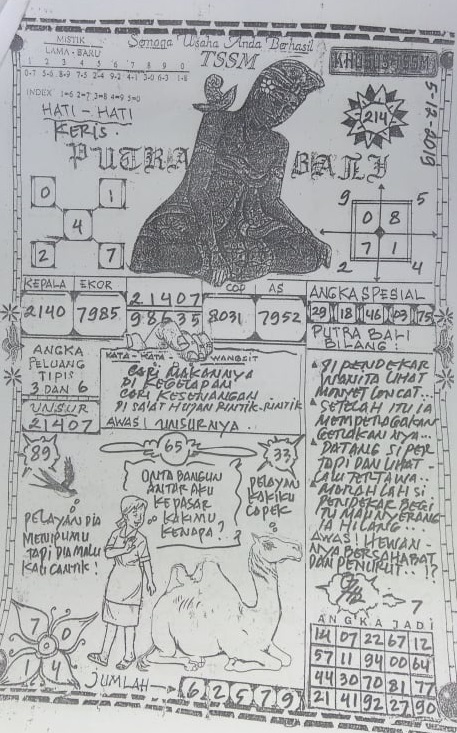 MISTIK
LAMA - BARU
1 2 3 4 5 6 7 8 9 0
0-7 5-6 8-9 7-5 2-4 9-2 4-1 3-0 6-3 1-8
INDEX 1=6 2=7 3=8 4=9 5=0
HATI - HATI
KERIS.
Semoga Usaha Anda Berhasil
TSSM
KHUSUS TSSM
5-12-2019
214
PUTRA BALI
0 1
4
2 7
9 5
0 8
7 1
2 4
KEPALA EKOR
2140 7985
21407
98635
COP AS
8031 7952
ANGKA SPESIAL
29 18 46 03 75
ANGKA
PELUANG
TIPIS
3 DAN 6
UNSUR
21407
KATA - KATA - WANGSIT
CARI MAKANNYA
DI KEGELAPAN
CARI KESENANGAN
DI SAAT HUJAN RINTIK-RINTIK
AWAS! UNSURNYA.
PUTRA BALI
BILANG:
SI PENDEKAR
WANITA LIHAT
MONYET LONCAT...
SETELAH ITU IA
MEMPERAGAKAN
GERAKANNYA...
DATANG SI PER
TAPI DAN LIHAT-
LALU TERTAWA..
MARAHLAH SI
PENDEKAR BEGI
TU MAU NYERANG
IA HILANG..
AWAS! HEWAN-
NYA BERSAHABAT
DAN PENURUT..!?
89
65
33
PELAYAN DIA
MENIPUMU
TAPI DIA MALU
KALI CANTIK!
ONTA BANGUN
ANTAR AKU
KE PASAR
KAKIMU
KENAPA?
PELAYAN
KAKIKU
CAPEK
7
7 0
1 4
JUMLAH 6 2 5 7 9
ANGKA JADI
14 07 22 67 12
57 11 94 00 64
44 30 70 81 77
21 41 92 27 90